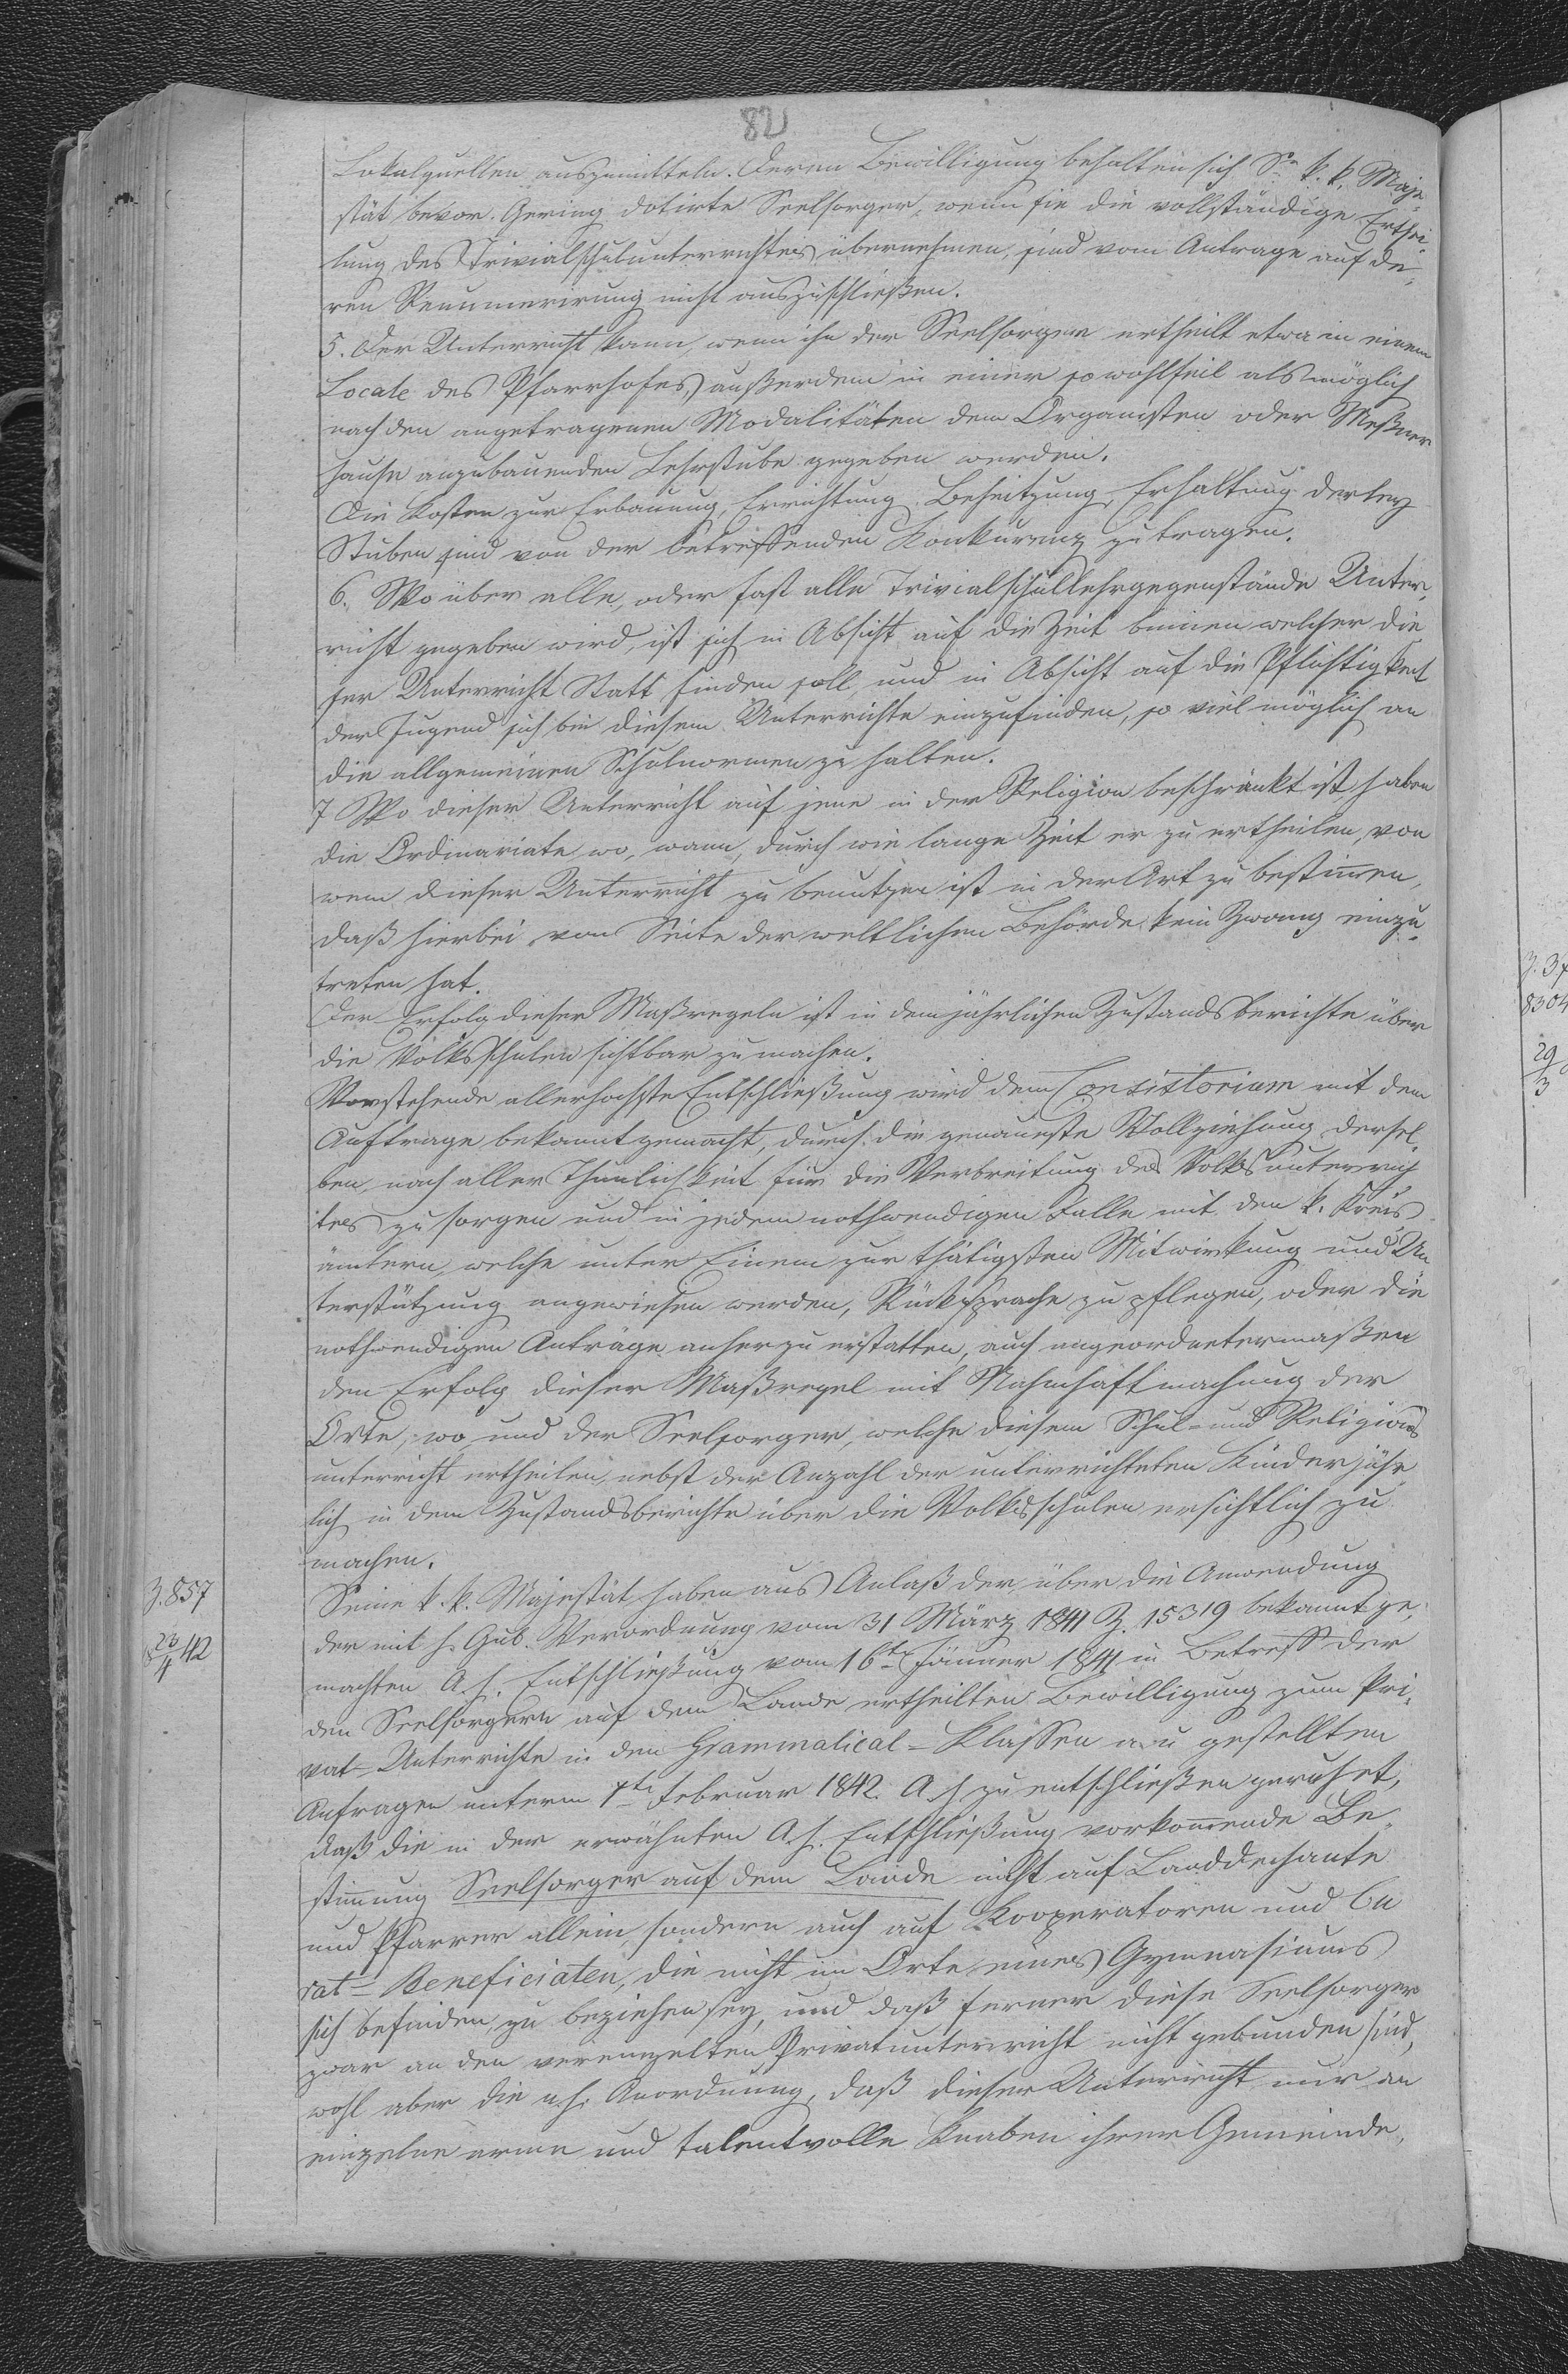 82
Lokalquellen auszumitteln. Deren Bewilligung behalten sich Sr k. k. Maje¬
stät bevor. Gering dotirte Seelsorger, wenn sie die vollständige Erthei¬
lung des Trivialschulunterrichtes übernehmen, sind vom Antrage auf de¬
ren Renumerirung nicht auszuschließen.
5. Der Unterricht kann, wenn ihn der Seelsorger ertheilt etwa in einem
Locale des Pfarrhofes, außerdem in einer so wohlfeil als möglich
nach den angetragenen Modalitäten dem Organisten oder Meßner
hause anzubauenden Lehrstube gegeben werden.
Die Kosten zur Erbauung, Errichtung, Beheitzung, Erhaltung derley
Stuben sind von der betreffenden Konkurenz zu tragen.
6. Wo über alle, oder fast alle Trivialschullehrgegenstände Unter¬
richt gegeben wird, ist sich in Absicht auf die Zeit binnen welcher die
ser Unterricht Statt finden soll, und in Absicht auf die Pflichtigkeit
der Jugend sich bei diesem Unterrichte einzufinden, so viel möglich an
die allgemeinen Schulnormen zu halten.
7 Wo dieser Unterricht auf jene in der Religion beschränkt ist, haben
die Ordinariate wo, wann, durch wie lange Zeit er zu ertheilen, von
wem dieser Unterricht zu benutzen ist in der Art zu bestimmen,
daß hierbei von Seite der weltlichen Behörde kein Zwang einzu¬
treten hat.
Der Erfolg dieser Maßregeln ist in dem jährlichen Zustandsberichte über
die Volksschulen sichtbar zu machen.
Vorstehende allerhochste Entschließung wird dem Consistorium mit dem
Auftrage bekannt gemacht, durch die genaueste Vollziehung dersel¬
ben, nach aller Thunlichkeit für die Verbreitung des Volksunterrich
tes zu sorgen und in jedem nothwendigen Falle mit den k. Kreis
ämtern, welche unter Einem zur thätigsten Mitwirkung und Un
terstützung angewiesen werden, Rücksprache zu pflegen, oder die
nothwendigen Anträge anher zu erstatten, auch angeordnetermaßen
den Erfolg dieser Maßregel mit Nahmhaftmachung der
Orte, wo, und der Seelsorger, welche diesem Schul- und Religions
unterricht ertheilen, nebst der Anzahl der unterrichteten Kinder jähr
lich in dem Zustandsberichte über die Volksschulen ersichtlich zu
machen.
Z. 857
23/4 42
Seine k. k. Majestät haben aus Anlaß der, über die Anwendung
der mit h. Gub. Verordnung vom 31 März 1841 Z. 15319 bekannt ge¬
machten A. h. Entschließung vom 16ten Jänner 1841 in Betreff der
den Seelsorgern auf dem Lande ertheilten Bewilligung zum Pri¬
vat-Unterrichte in den Grammatical-Klassen gestellten
Anfragen unterm 1ten Februar 1842. A. h zu entschließen geruhet,
daß die in der erwähnten A. h. Entschließung vorkommende Be¬
stimmung Seelsorger auf dem Lande nicht auf Landdechante
und Pfarrer allein sondern auch auf Kooperatoren und Cu
rat-Beneficiaten, die nicht im Orte eines Gymnasiums
sich befinden, zu beziehen sey, und daß ferner diese Seelsorger
zwar an den vereinzelten Privatunterricht nicht gebunden sind,
wohl aber die a. h. Anordnung, daß dieser Unterricht nur an
einzelne arme und talentvolle Knaben ihrer Gemeinde,
8304
29/3